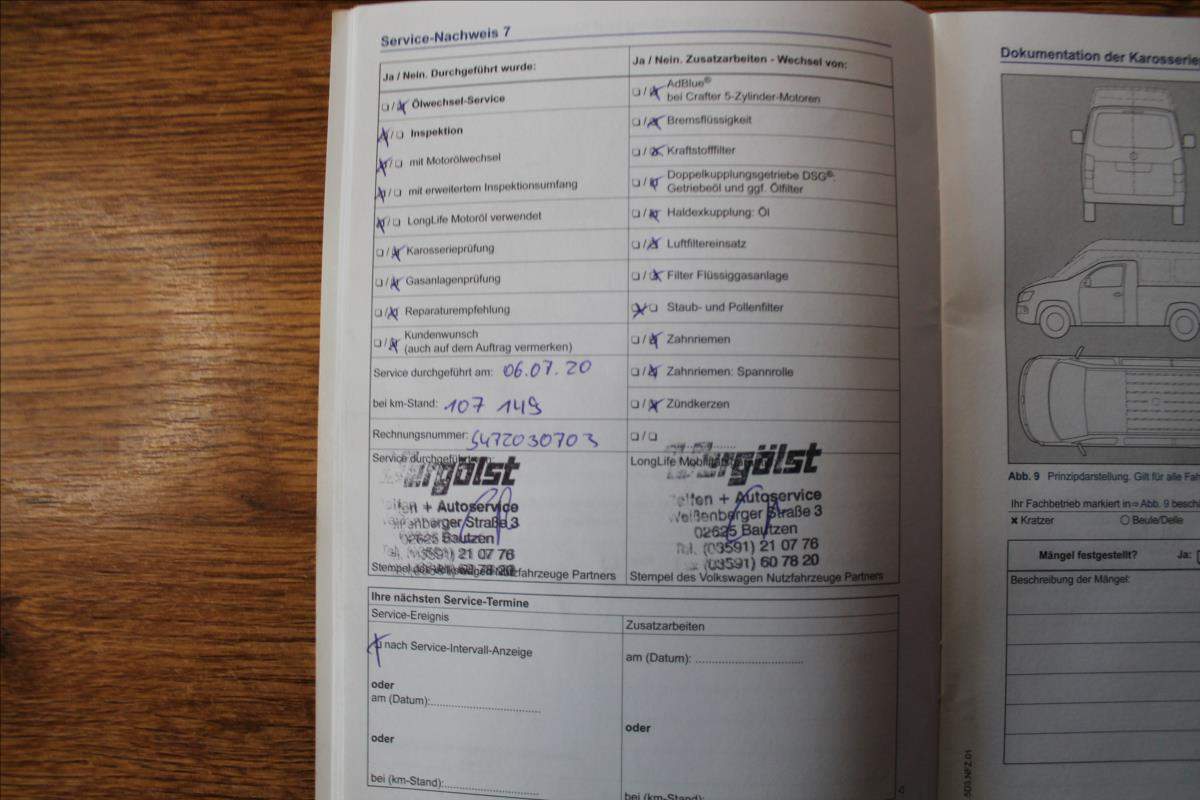 Service-Nachweis 7
Ja / Nein. Durchgeführt wurde:
❏ / ❏ Ölwechsel-Service
❏ / ❏ Inspektion
❏ / ❏ mit Motorölwechsel
❏ / ❏ mit erweitertem Inspektionsumfang
❏ / ❏ LongLife Motoröl verwendet
❏ / ❏ Karosserieprüfung
❏ / ❏ Gasanlagenprüfung
❏ / ❏ Reparaturempfehlung
❏ / ❏ Kundenwunsch
(auch auf dem Auftrag vermerken)
Service durchgeführt am: 06.07.20
bei km-Stand: 107 149
Rechnungsnummer: 5472030703
Service durchgeführt
+ Autoservice
Straße 3
02625 Bautzen
21 07 76
Stempel des Volkswagen Nutzfahrzeuge Partners
Ja / Nein. Zusatzarbeiten - Wechsel von:
❏ / ❏ AdBlue®
bei Crafter 5-Zylinder-Motoren
❏ / ❏ Bremsflüssigkeit
❏ / ❏ Kraftstofffilter
❏ / ❏ Doppelkupplungsgetriebe DSG®:
Getriebeöl und ggf. Ölfilter
❏ / ❏ Haldexkupplung: Öl
❏ / ❏ Luftfiltereinsatz
❏ / ❏ Filter Flüssiggasanlage
❏ / ❏ Staub- und Pollenfilter
❏ / ❏ Zahnriemen
❏ / ❏ Zahnriemen: Spannrolle
❏ / ❏ Zündkerzen
❏ / ❏
LongLife
+ Autoservice
Weißenberger Straße 3
02625 Bautzen
Tel. (03591) 21 07 76
(03591) 60 78 20
Stempel des Volkswagen Nutzfahrzeuge Partners
Ihre nächsten Service-Termine
Service-Ereignis
nach Service-Intervall-Anzeige
oder
am (Datum):
oder
bei (km-Stand):
Zusatzarbeiten
am (Datum):
oder
bei (km-Stand):
Dokumentation der Karosserie
Abb. 9 Prinzipdarstellung. Gilt für alle
Ihr Fachbetrieb markiert in ⇒ Abb. 9
✖ Kratzer ○ Beule/Delle
Mängel festgestellt? Ja:
Beschreibung der Mängel:
5D3.NFZ.01